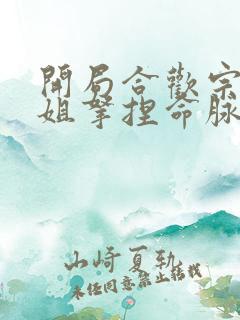 開局合歡宗
姐拏捏命脈
山崎夏軌
未經同意禁止轉載